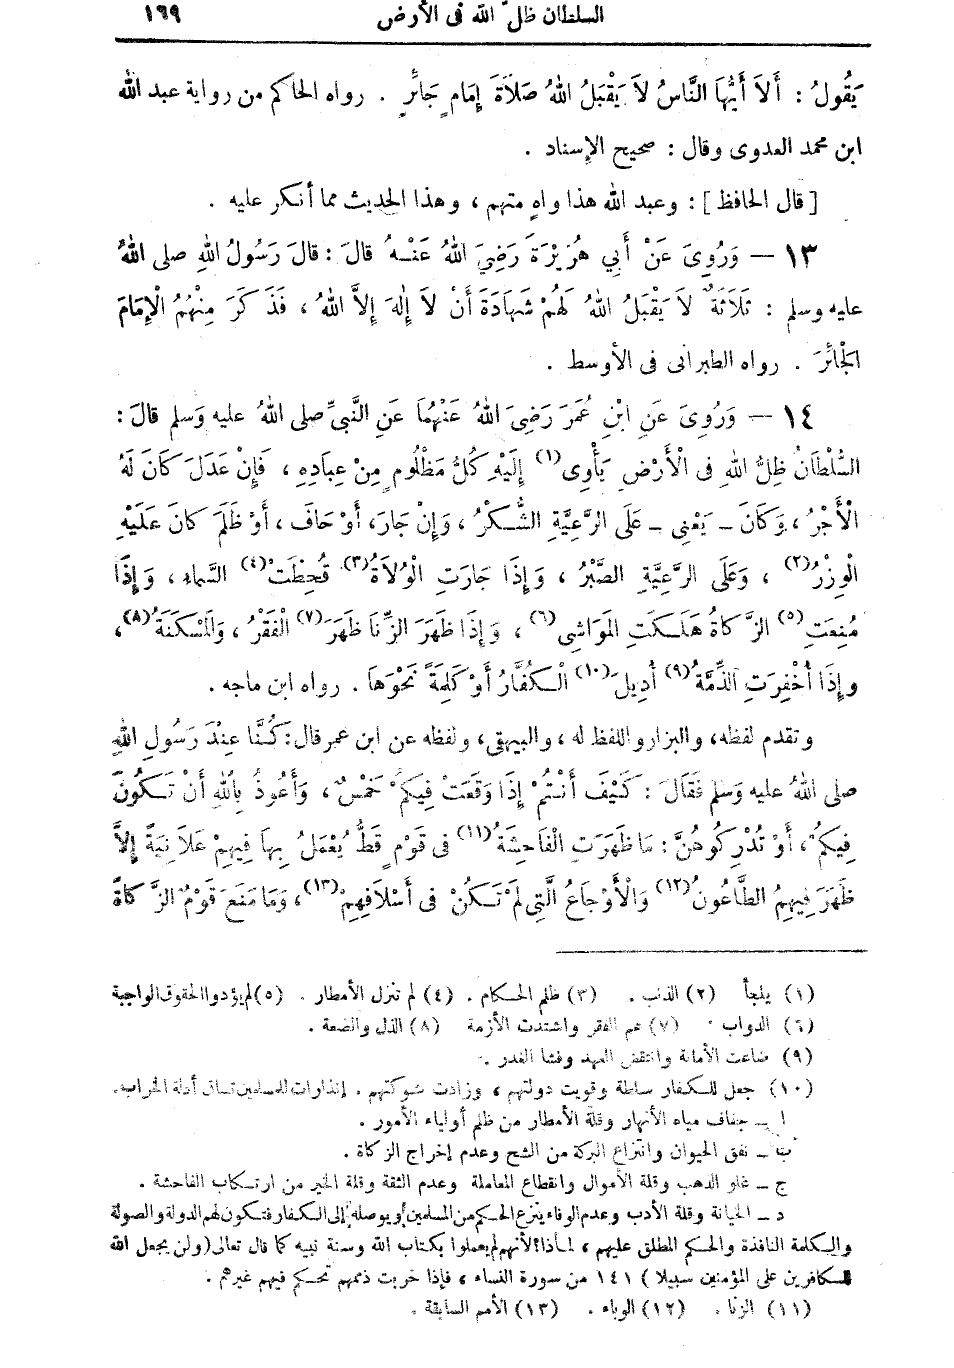 السلطان ظل الله فى الأرض ١٦٩
يَقُولُ : أَلاَ أَيُّهَا النَّاسُ لاَ يَقْبَلُ اللهُ صَلاَةَ إِمَامٍ جَائرٍ . رواه الحاكم من رواية عبد الله
ابن محمد العدوى وقال : صحيح الإسناد .
[ قال الحافظ ] : وعبد الله هذا واهٍ متهم ، وهذا الحديث مما أنكر عليه .
١٣ — وَرُوِىَ عَنْ أَبِي هُرَيْرَةَ رَضِيَ اللهُ عَنْهُ قالَ : قالَ رَسُولُ اللهِ صلى اللهُ
عليه وسلم : ثَلاَثَةٌ لاَ يَقْبَلُ اللهُ لَهُمْ شَهَادَةَ أَنْ لاَ إِلهَ إِلاَّ اللهُ ، فَذَكَرَ مِنْهُمُ الْإِمَامَ
الْجَائرَ . رواه الطبرانى فى الأوسط .
١٤ — وَرُوِىَ عَنِ ابْنِ عُمَرَ رَضِيَ اللهُ عَنْهُمَا عَنِ النَّبِيِّ صلى اللهُ عليه وَسلم قالَ :
السُّلْطَانُ ظِلُّ اللهِ فى الْأَرْضِ يَأْوِى(١) إِلَيْهِ كُلُّ مَظْلُومٍ مِنْ عِبَادِهِ ، فَإِنْ عَدَلَ كَانَ لَهُ
الْأَجْرُ ، وَكَانَ ــ يَعْنِى ــ عَلَى الرَّعِيَّةِ الشُّكْرُ ، وَإِنْ جَارَ، أَوْ حَافَ ، أَوْ ظَلَمَ كانَ عَلَيْهِ
الْوِزْرُ(٢) ، وَعَلَى الرَّعِيَّةِ الصَّبْرُ ، وَإِذَا جَارَتِ الْوُلاَةُ(٣) قُحِطَتْ(٤) السَّماءُ ، وَإِذَا
مُنِعَتِ(٥) الزَّكاةُ هَلَكَتِ الْمَوَاشِى(٦) ، وَإِذَا ظَهَرَ الزِّنَا ظَهَرَ(٧) الْفَقْرُ ، وَالْمَسْكَنَةُ(٨) ،
وإِذَا أُخْفِرَتِ الذِّمَّةُ(٩) أُدِيلَ(١٠) الْكُفَّارُ أَوْ كَلِمَةً نَحْوَهَا . رواه ابن ماجه .
وتقدم لفظه، والبزار واللفظ له ، والبيهقى، ولفظه عن ابن عمر قال: كُنَّا عِنْدَ رَسُولِ اللهِ
صلى اللهُ عليه وَسلم فَقَالَ : كَيْفَ أَنْتُمْ إِذَا وَقَعَتْ فِيكُمْ خَمْسٌ ، وَأَعُوذُ بِاللهِ أَنْ تَكُونَ
فِيكُمْ ، أَوْ تُدْرِكُوهُنَّ : مَا ظَهَرَتِ الْفَاحِشَةُ(١١) فى قَوْمٍ قَطُّ يُعْمَلُ بِهَا فِيهِمْ عَلاَنِيَةً إِلاَّ
ظَهَرَ فِيهِمُ الطَّاعُونُ(١٢) وَالْأَوْجَاعُ الَّتِى لَمْ تَكُنْ فى أَسْلاَفِهِمْ(١٣)، وَمَا مَنَعَ قَوْمٌ الزَّكَاةَ
(١) يلجأ (٢) الذنب . (٣) ظلم الحكام . (٤) لم تنزل الأمطار . (٥) لم يؤدوا الحقوق الواجبة
(٦) الدواب . (٧) عم الفقر واشتدت الأزمة (٨) الذل والضعة .
(٩) ضاعت الأمانة وانتقض العهد وفشا الغدر .
(١٠) جعل للكفار سلطة وقويت دولتهم ، وزادت شوكتهم . إنذارات للمسلمين تساق أدلة الخراب.
ا ــ جفاف مياه الأنهار وقلة الأمطار من ظلم أولياء الأمور .
ب ــ نفق الحيوان وانتزاع البركة من الشح وعدم إخراج الزكاة .
ج ــ غلو الذهب وقلة الأموال وانقطاع المعاملة وعدم الثقة وقلة الخير من ارتكاب الفاحشة .
د ــ الخيانة وقلة الأدب وعدم الوفاء ينزع الحكم من المسلمين أو يوصله إلى الكفار فتكون لهم الدولة والصولة
والكلمة النافذة والحكم المطلق عليهم ، لماذا؟ لأنهم لم يعملوا بكتاب الله وسنة نبيه كما قال تعالى (ولن يجعل الله
للكافرين على المؤمنين سبيلا ) ١٤١ من سورة النساء ، فإذا خربت ذممهم تحكم فيهم غيرهم .
(١١) الزنا . (١٢) الوباء . (١٣) الأمم السابقة .